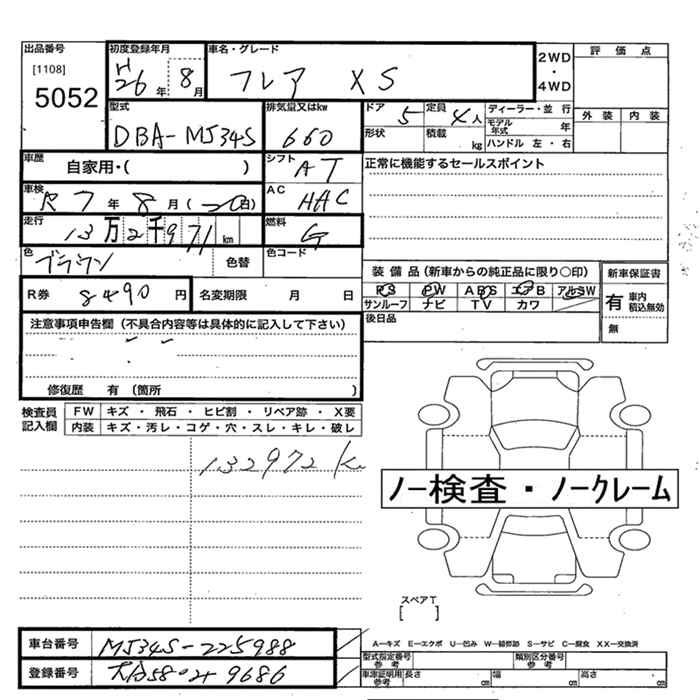 出品番号 初度登録年月 車名・グレード 2WD ・ 4WD 評価点
[1108]
5052
H26年 8月 フレア XS
外装 内装
型式 排気量又はkw ドア 5 定員 4人 ディーラー・並行
DBA-MJ34S 660 形状 積載 kg モデル年式 年
ハンドル 左・右
車歴 自家用・( ) シフト AT 正常に機能するセールスポイント
車検 R7年 8月 (20日) AC AAC
走行 13万2千971km 燃料 G
色 ブラウン 色替 色コード
装備品(新車からの純正品に限り○印) 新車保証書
PS PW ABS エアB アルミW 有 車内積込無効
サンルーフ ナビ TV カワ 無
R券 8490円 名変期限 月 日
後日品
注意事項申告欄(不具合内容等は具体的に記入して下さい)
修復歴 有(箇所 )
検査員記入欄 FW キズ・飛石・ヒビ割・リペア跡・X要
内装 キズ・汚レ・コゲ・穴・スレ・キレ・破レ
132972k
ノー検査・ノークレーム
スペアT
[ ]
車台番号 MJ34S-225988
A-キズ E-エクボ U-凹み W-補修跡 S-サビ C-腐食 XX-交換済
型式指定番号参考 類別区分番号参考
登録番号 9686
車庫証明用参考 長さ cm 幅 cm 高さ cm